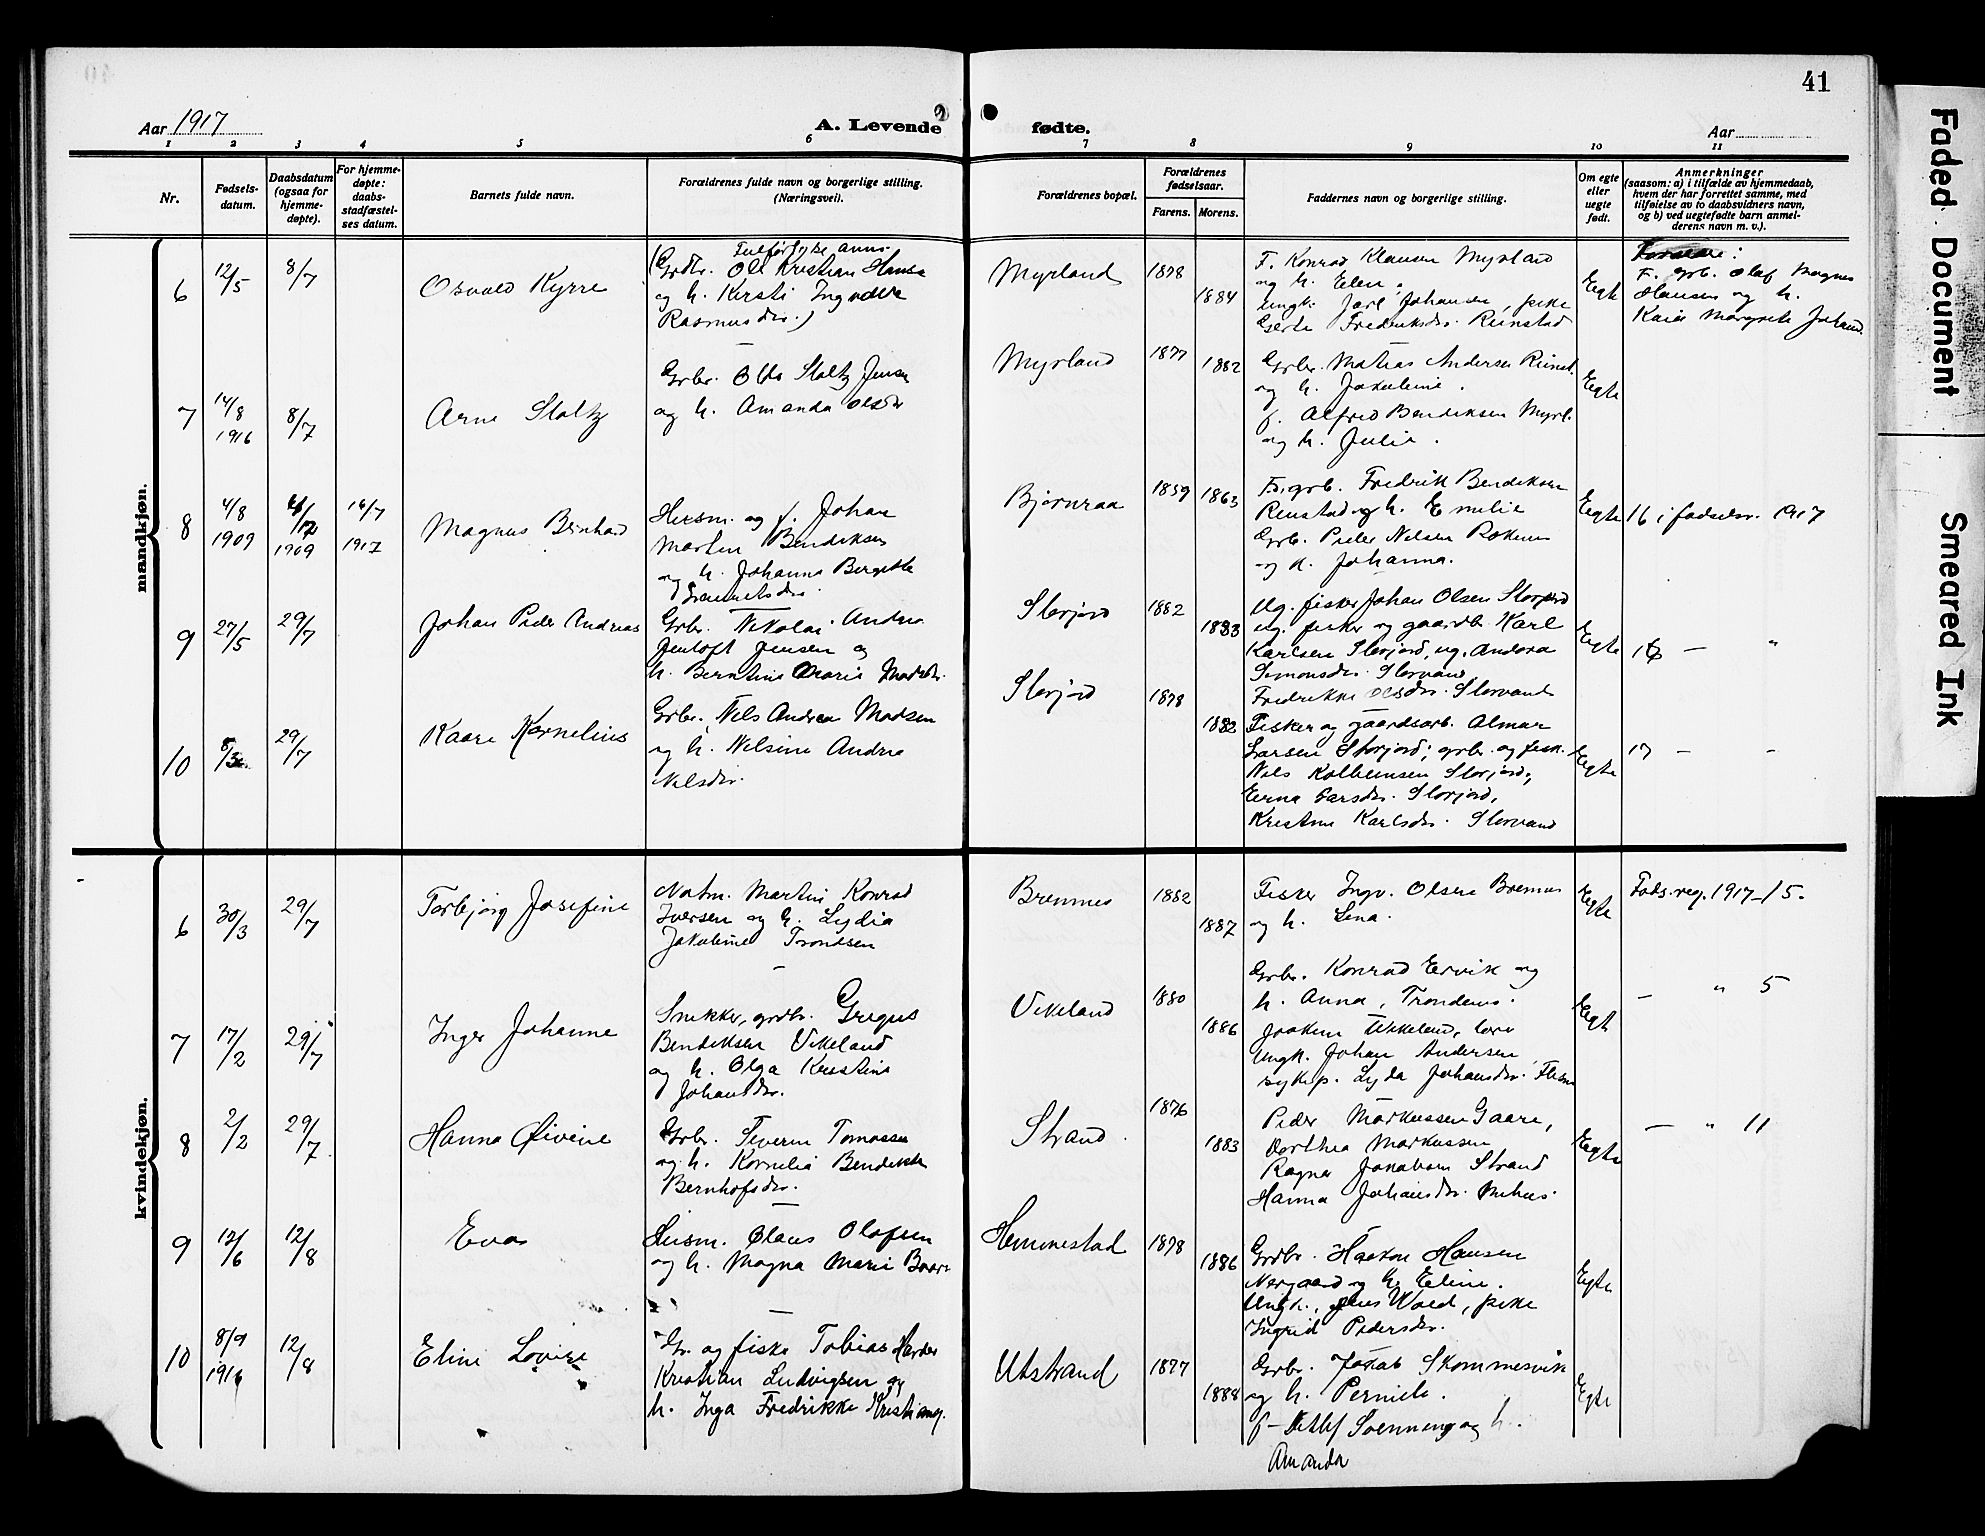 41
Aar 1917
A. Levende
fødte.
Aar
1 2 3 4 5 6 7 8 9 10 11
Nr.
Fødsels-
datum.
Daabsdatum
(ogsaa for
hjemme-
døpte).
For hjemme-
døpte:
daabs-
stadfæstel-
ses datum.
Barnets fulde navn.
Forældrenes fulde navn og borgerlige stilling.
(Næringsvei).
Forældrenes bopæl.
Forældrenes
fødselsaar.
Farens. Morens.
Faddernes navn og borgerlige stilling.
Om egte
eller
uegte
født.
Anmerkninger
(saasom: a) i tilfælde av hjemmedaab,
hvem der har forrettet samme, med
tilføielse av to daabsvidners navn,
og b) ved uegtefødte barn anmel-
derens navn m. v.).
mandkjøn.
6
12/5
8/7
Osvald Kyrre
Ole Kristian Hansen
og h. Kersti
Rasmusdr.)
Myrland
1878
1884
F. Konrad Klausen Myrland
og h. Elen,
Ungk. Jarl Johansen, pike
Fredriksdr. Reinstad
Egte
F. grb. Olaf Magnus
Hansen og h.
7
14/8
1916
8/7
Arne Stoltz
Grbr. Stoltz Jensen
og h. Amanda Olsdr
Myrland
1877
1882
Grbr. Matias Andersen
og h. Jakobine.
f. Alfred Bendiksen Myrl.
og h. Julie.
Egte
8
4/8
1909
1909
14/7
1917
Magnus Bernhard
og f. Johan
Martin Bendiksen
og h. Johanna Bergitte
Bjørnraa
1859
1863
Fredrik Bendiksen
Reinstad og h. Emilie
Grb. Peder Nilsen
og h. Johanna.
Egte
16 i fødselsr. 1917
9
27/5
29/7
Johan Peder Andreas
Grbr. Nikolai Andreas
Jentoft Jensen og
h. Berntine Marie
Storjord
1882
1883
Ug. fisker Johan Olsen Storjord
ug. fisker og gaardbr. Karl
Karlsen Storjord, ug. Andora
Simonsdr. Storvand
Fredrikke Olsdr. Storvand
Egte
— "
10
29/7
Kaare Kornelius
Grbr. Nils Andreas Madsen
og h. Nilsine Andrea
Nilsdr.
Storjord
1878
1882
Fisker og gaardsarb. Almar
Larsen Storjord; grbr. og fisk.
Nils Kolbeinsen Storjord,
Erna Larsdr. Storjord,
Kristine Karlsdr. Storvand
Egte
17 — "
kvindekjøn.
6
30/3
29/7
Torbjørg Josefine
Martin Konrad
Iversen og h. Lydia
Jakobine Trondsen
Bremnes
1882
1887
Fisker Ingv. Olsen Bremnes
og h. Lena.
Egte
Føds.reg. 1917-15.
7
17/2
29/7
Inger Johanne
Snekker, grdbr. Gregus
Bendiksen Vikeland
og h. Olga Kristine
Johansdr.
Vikeland
1880
1886
Grbr. Konrad Ervik og
h. Anna, Trondenes.
Joakim Vikeland,
Ungk. Johan Andersen,
sykep. Lyda Johansdr.
Egte
— " 5
8
2/2
29/7
Hanna Øivine
Grbr. Severin Tomassen
og h. Kornelia Bendikte
Bernhofsdr.
Strand.
1876
1883
Peder Markussen Gaare,
Dorthea Markussen
Ragna Jakobsen Strand
Hanna Johansdr.
Egte
— " 11
9
12/6
12/8
Eva
Husm. Olaus Olafsen
og h. Magna Marie
Hemmestad
1878
1886
Grdbr. Haakon Hansen
Nergaard og h. Eline.
Ungk. Jens Wold, pike
Ingrid Pedersdr.
Egte
10
8/9
1916
12/8
Eline Lovise
Gr. og fisker Tobias
Kristian Ludvigsen og
h. Inga Fredrikke
Utstrand
1877
1888
Grbr. Jakob Skommesvik
og h. Pernille.
f. Detlef Soenning og h.
Amanda
Egte
Faded Document
Smeared Ink